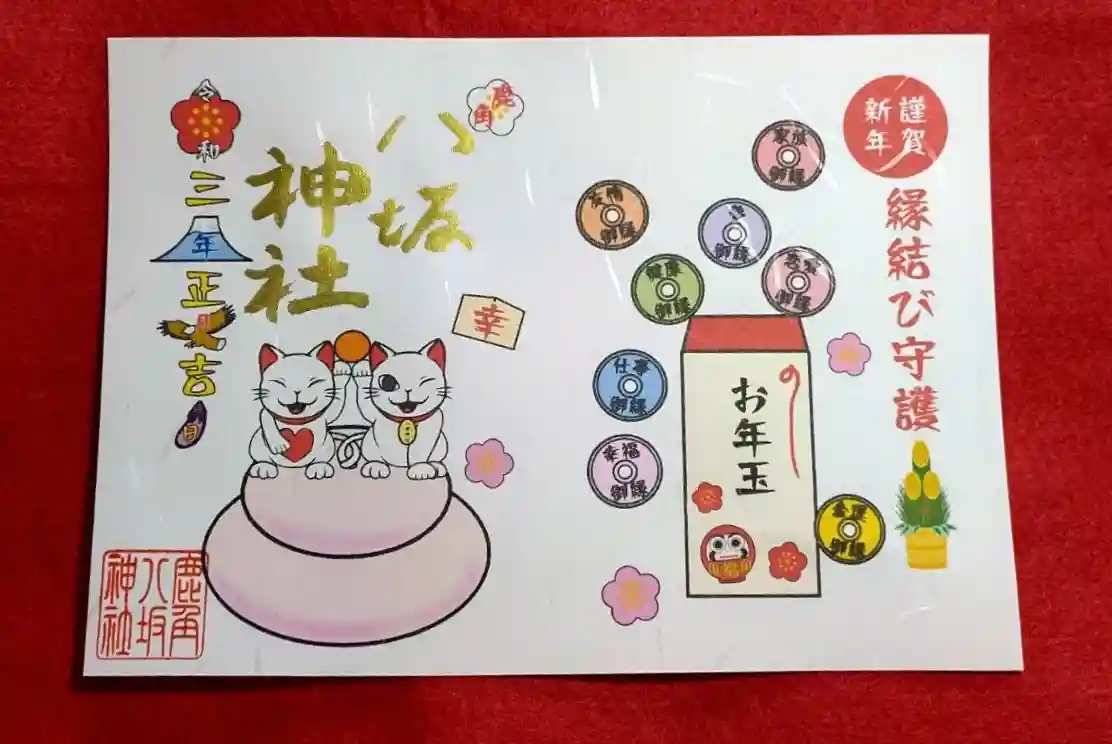 謹賀
新年
縁結び守護
家族
御縁
友情
御縁
き
御縁
健康
御縁
恋愛
御縁
仕事
御縁
幸福
御縁
金運
御縁
お年玉
の
福
鹿角
八坂
神社
幸
令和三年正月吉日
鹿角
八坂
神社